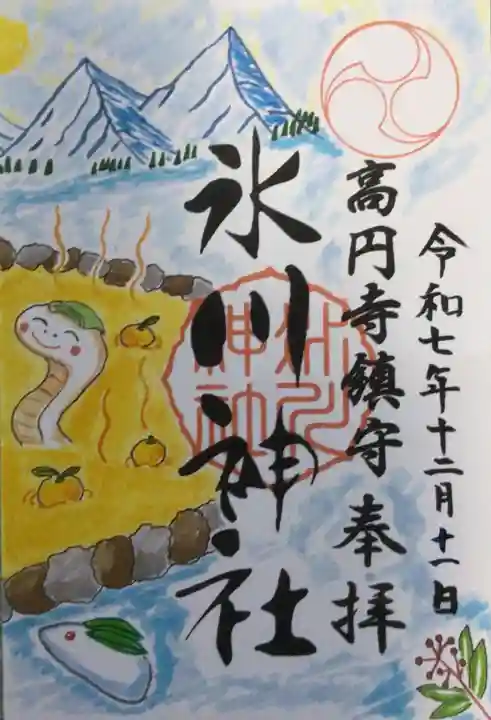 令和七年十二月十一日
高円寺鎮守 奉拝
氷川神社
氷川
神社